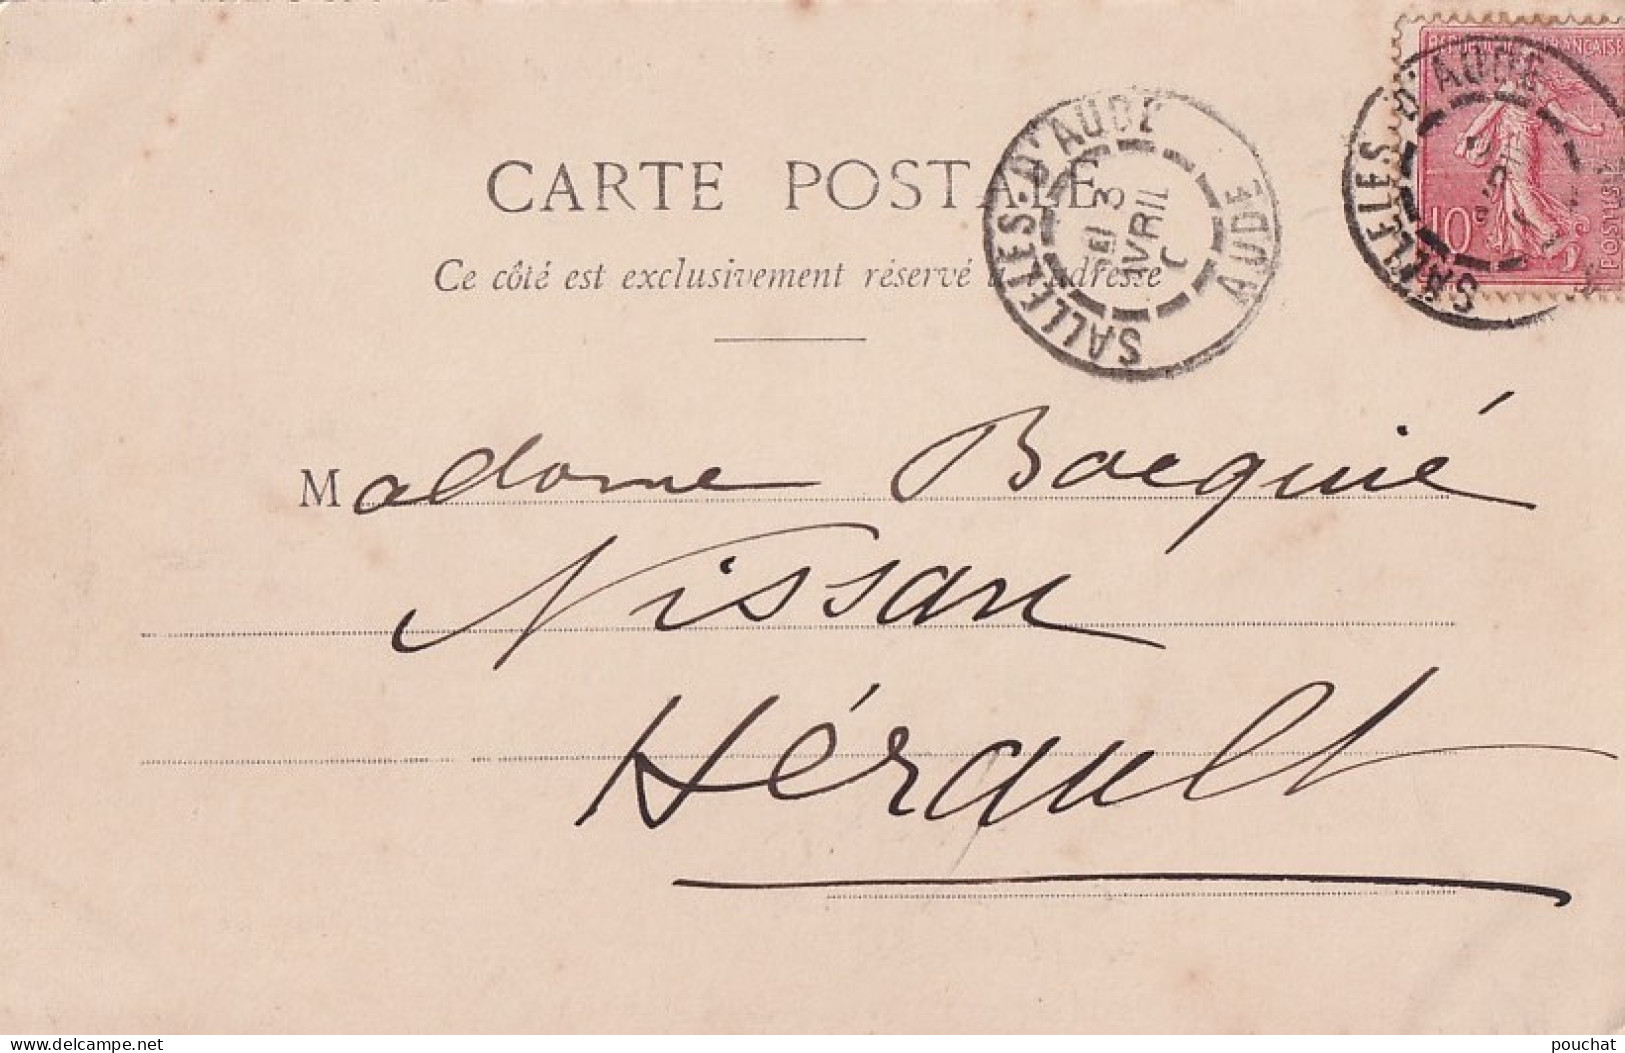 RÉPUBLIQUE FRANÇAISE
10
POSTES
SALLELES-D'AUDE
SALLELES-D'AUDE
3
AVRIL
AUDE
CARTE POSTALE
Ce côté est exclusivement réservé à l'adresse
Madame Bacquié
Nissan
Hérault
www.delcampe.net
pouchat